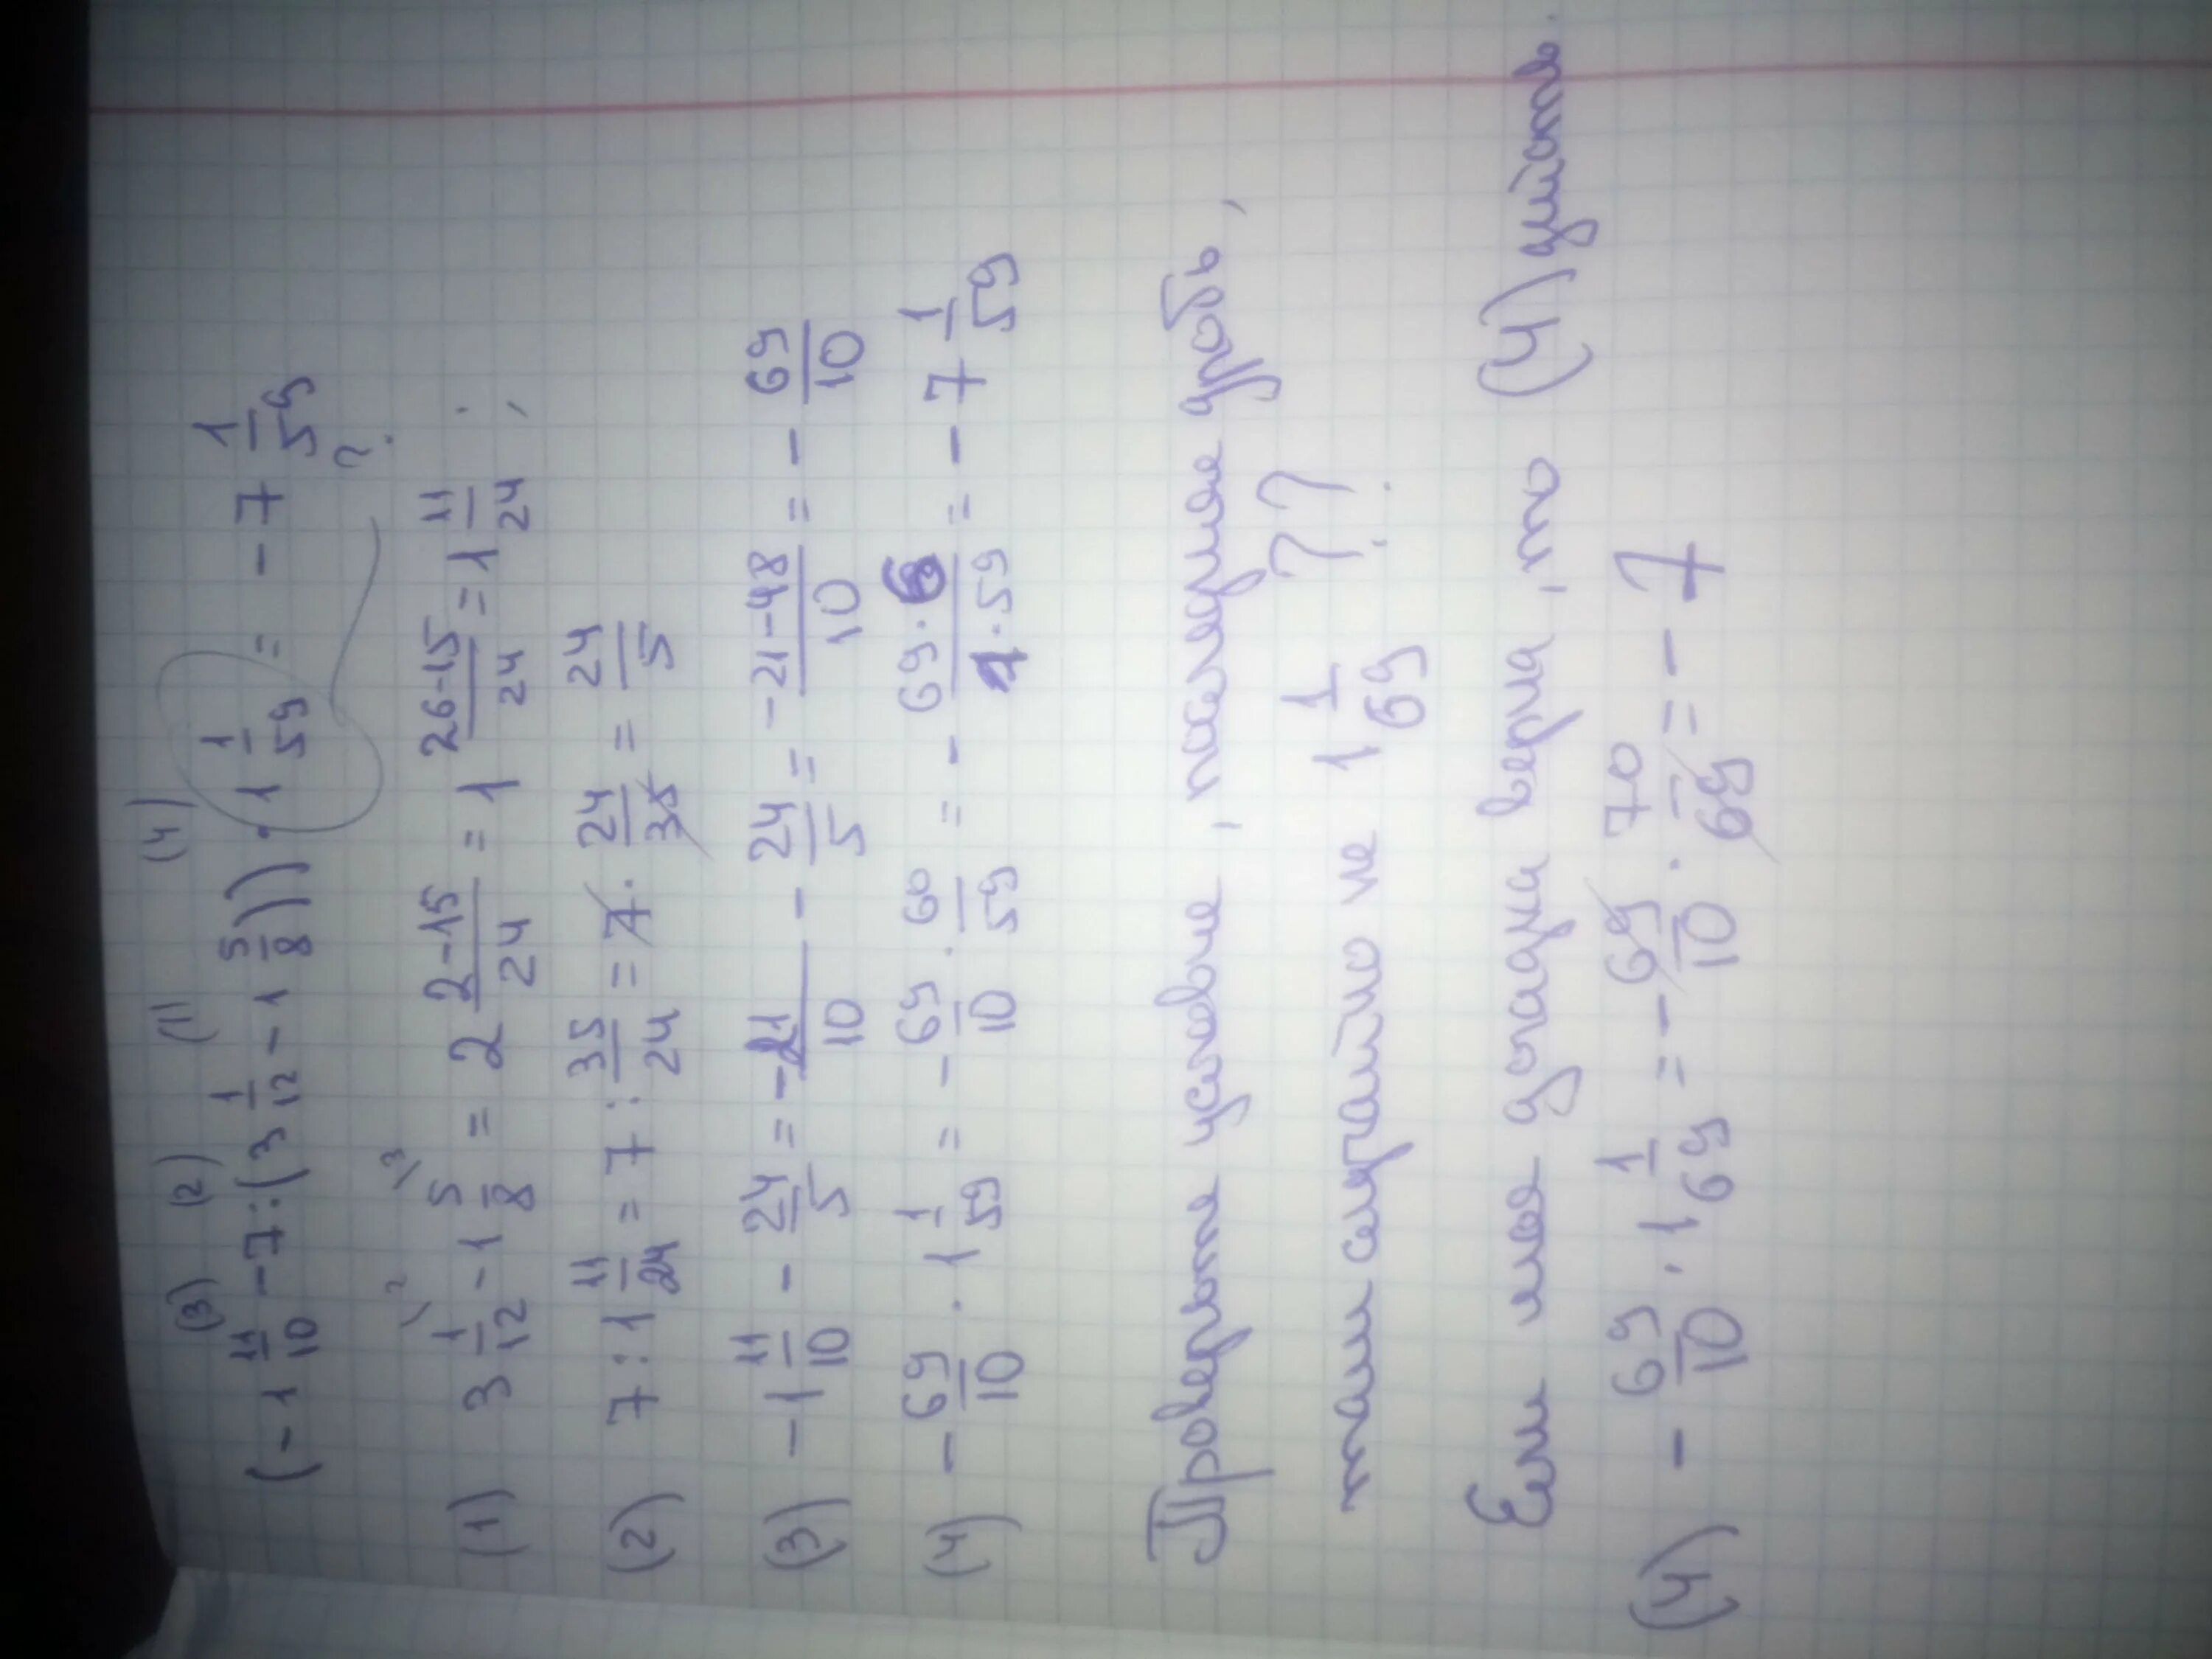 (3) (2) (1) (4)
(-1 11/10 - 7 : (3 1/12 - 1 5/8)) · 1 1/59 = -7 1/59
?
(1) 3 1/12 \2 - 1 5/8 \3 = 2 2-15/24 = 1 26-15/24 = 1 11/24 ;
(2) 7 : 1 11/24 = 7 : 35/24 = 7 · 24/35 = 24/5
(3) -1 11/10 - 24/5 = -21/10 - 24/5 = -21-48/10 = - 69/10
(4) - 69/10 · 1 1/59 = - 69/10 · 60/59 = - 69·6/1·59 = - 7 1/59
Проверьте условие, последняя дробь,
там случайно не 1 1/69 ??
Если моя догадка верна, то (4) действ.
(4) - 69/10 · 1 1/69 = - 69/10 · 70/69 = - 7